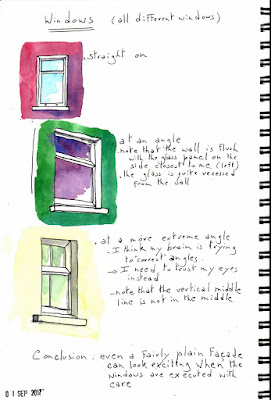 Windows (all different windows)
. straight on
. at an angle
. note that the wall is flush
with the glass panel on the
side closest to me (left)
. the glass is quite recessed
from the wall
. at a more extreme angle
. I think my brain is trying
to "correct" angles.
→ I need to trust my eyes
instead
. note that the vertical middle
line is not in the middle
Conclusion : even a fairly plain façade
can look exciting when the
windows are executed with
care
01 SEP 2017